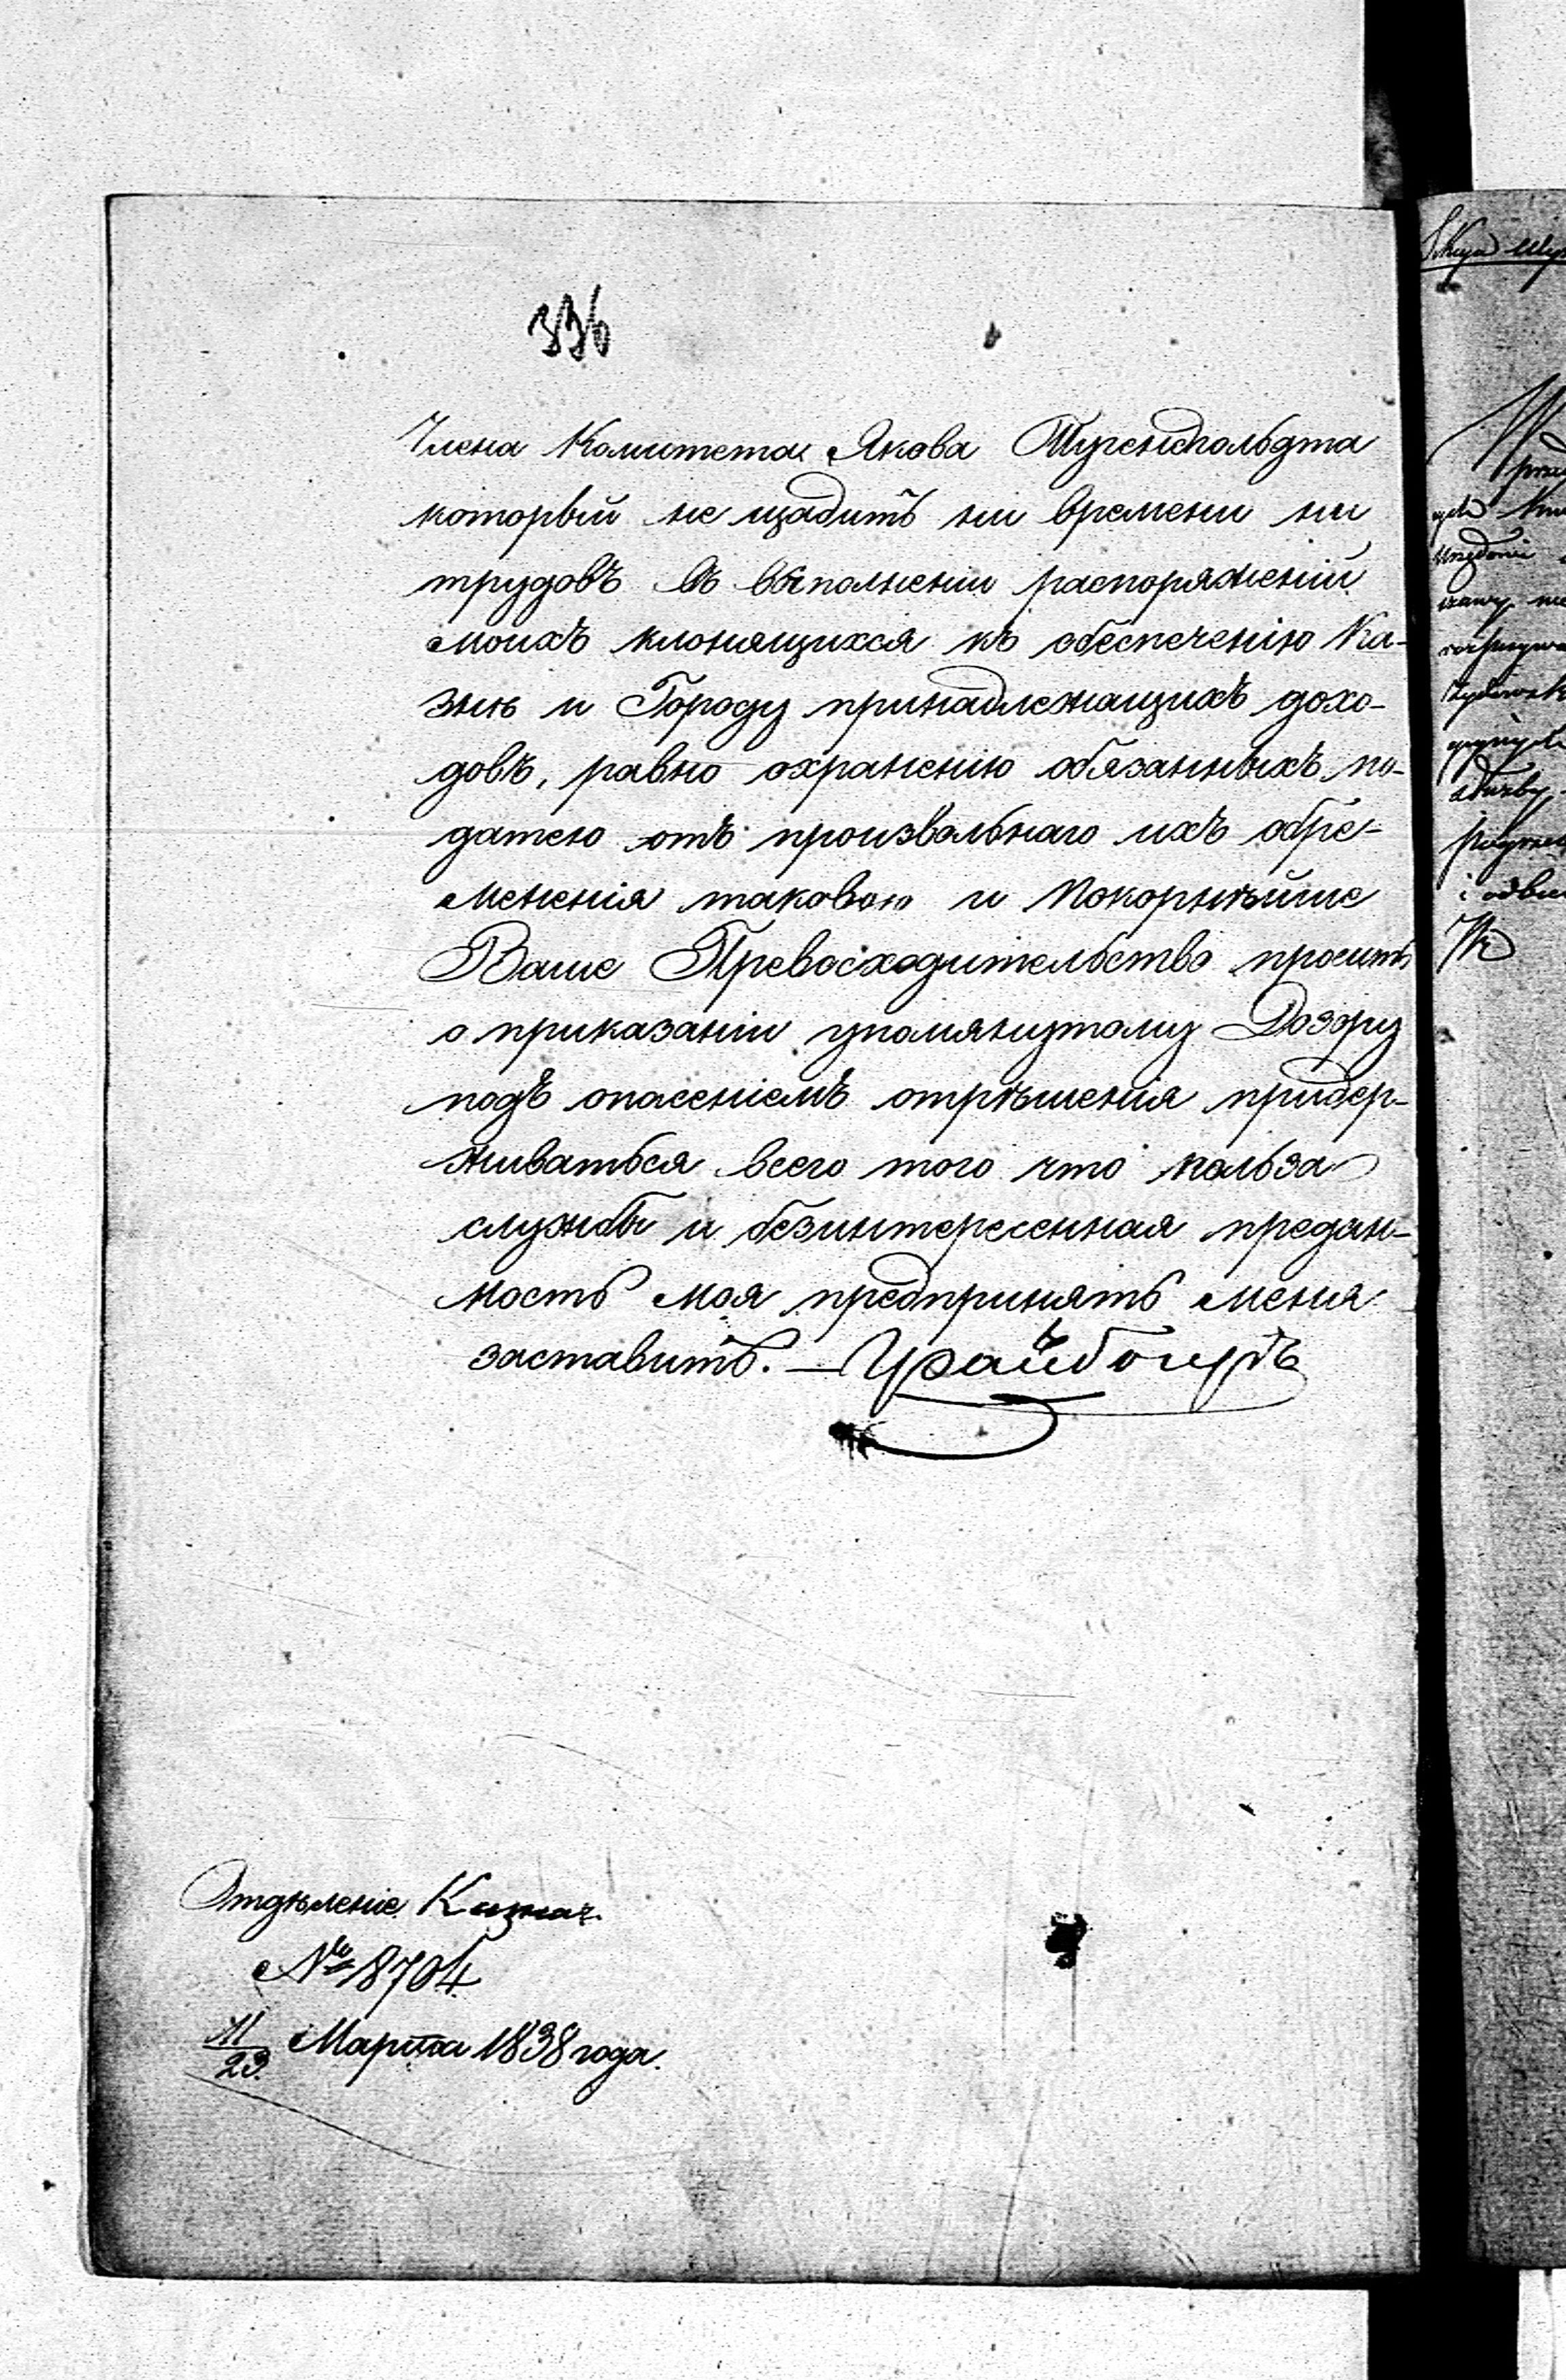 336
Члена Комитета Якова Тугенгольдта
который не щадитъ ни времени ни
трудовъ въ выполнении распоряженій
моихъ клонящихся къ обеспеченію Ка-
знѣ и Городу принадлежащихъ дохо-
довъ, равно охраненію обязанныхъ по-
датею отъ произвольнаго ихъ обре-
мененія таковою и покорнѣйше
Ваше Превосходительство просить
о приказаніи упомянутому Дозору
подъ опасеніемъ отрѣшенія придер-
живаться всего того что польза
службы и безинтересенная предан-
ность моя предпринять меня
заставитъ. —
Отдѣленіе
№ 8704
11/23. Марта 1838 года.